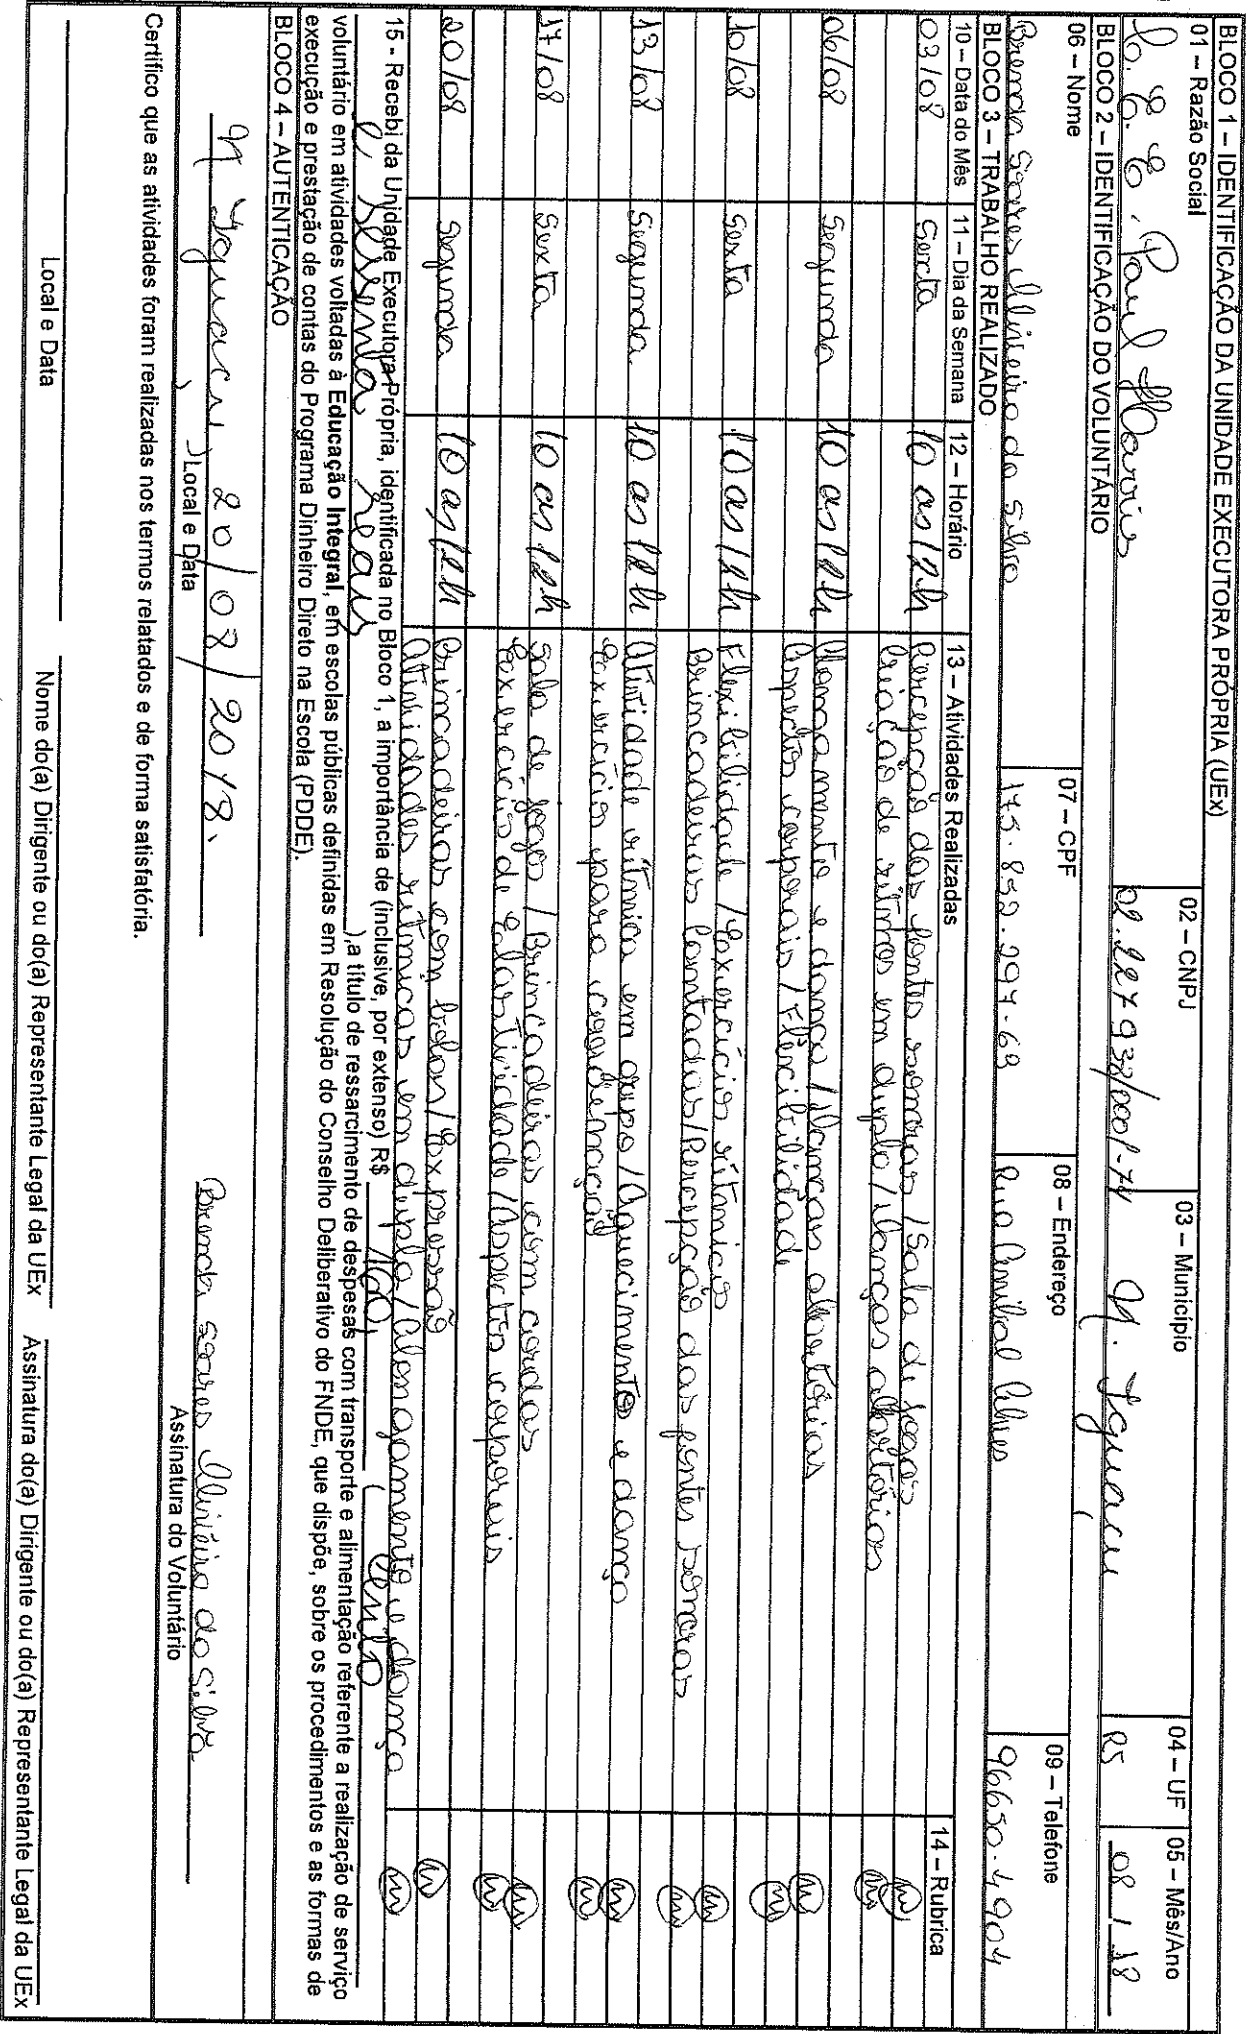 BLOCO 1 – IDENTIFICAÇÃO DA UNIDADE EXECUTORA PRÓPRIA (UEx)
01 – Razão Social 02 – CNPJ 03 – Município 04 – UF 05 – Mês/Ano
Paul Harris 02.227938/0001-74 N. Iguacu RJ 08 / 18
BLOCO 2 – IDENTIFICAÇÃO DO VOLUNTÁRIO
06 – Nome 07 – CPF 08 – Endereço 09 – Telefone
Brenda Soares da Silva 175.859.297-69 Rua Anibal Alves 96650-4904
BLOCO 3 – TRABALHO REALIZADO
10 – Data do Mês 11 – Dia da Semana 12 – Horário 13 – Atividades Realizadas 14 – Rubrica
03/08 Sexta 10 as 12h Percepção das fontes sonoras / Sala de jogos
Criação de ritmos em dupla / danças aleatórias
06/08 Segunda 10 as 12h Alongamento e dança / danças aleatórias
Aspectos corporais / Flexibilidade
10/08 Sexta 10 as 12h Flexibilidade / Exercícios ritmicos
Brincadeiras Cantadas / Percepção das fontes sonoras
13/08 Segunda 10 as 12h Atividade ritmica em grupo / Aquecimento e dança
Exercício para coordenação
17/08 Sexta 10 as 12h Sala de jogo / Brincadeiras com cordas
Exercício de Elasticidade / Aspectos corporais
20/08 Segunda 10 as 12h Brincadeiras com bolas / Expressão
Atividades ritmicas em dupla / Alongamento e dança
15 - Recebi da Unidade Executora Própria, identificada no Bloco 1, a importância de (inclusive, por extenso) R$ 160, ( Cento
e sessenta reais ),a título de ressarcimento de despesas com transporte e alimentação referente a realização de serviço
voluntário em atividades voltadas à Educação Integral, em escolas públicas definidas em Resolução do Conselho Deliberativo do FNDE, que dispõe, sobre os procedimentos e as formas de
execução e prestação de contas do Programa Dinheiro Direto na Escola (PDDE).
BLOCO 4 – AUTENTICAÇÃO
N Iguacu, 20/08/2018. Brenda Soares da Silva
Local e Data Assinatura do Voluntário
Certifico que as atividades foram realizadas nos termos relatados e de forma satisfatória.
Local e Data Nome do(a) Dirigente ou do(a) Representante Legal da UEx Assinatura do(a) Dirigente ou do(a) Representante Legal da UEx